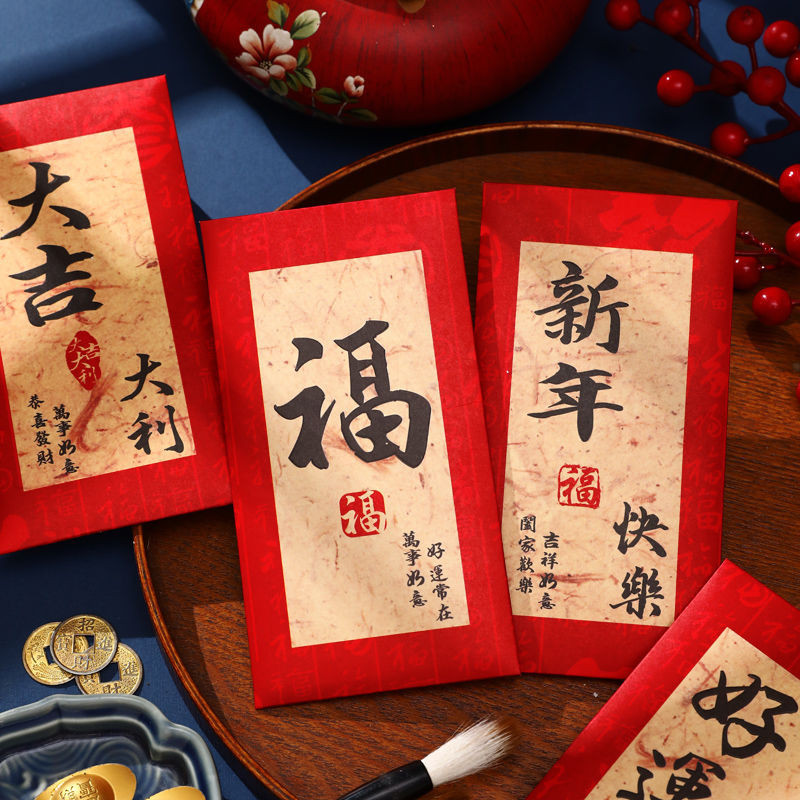 大吉
大利
大吉大利
萬事如意
恭喜發財
福
福
好運常在
萬事如意
新年
快樂
福
吉祥如意
闔家歡樂
好運
招財進寶